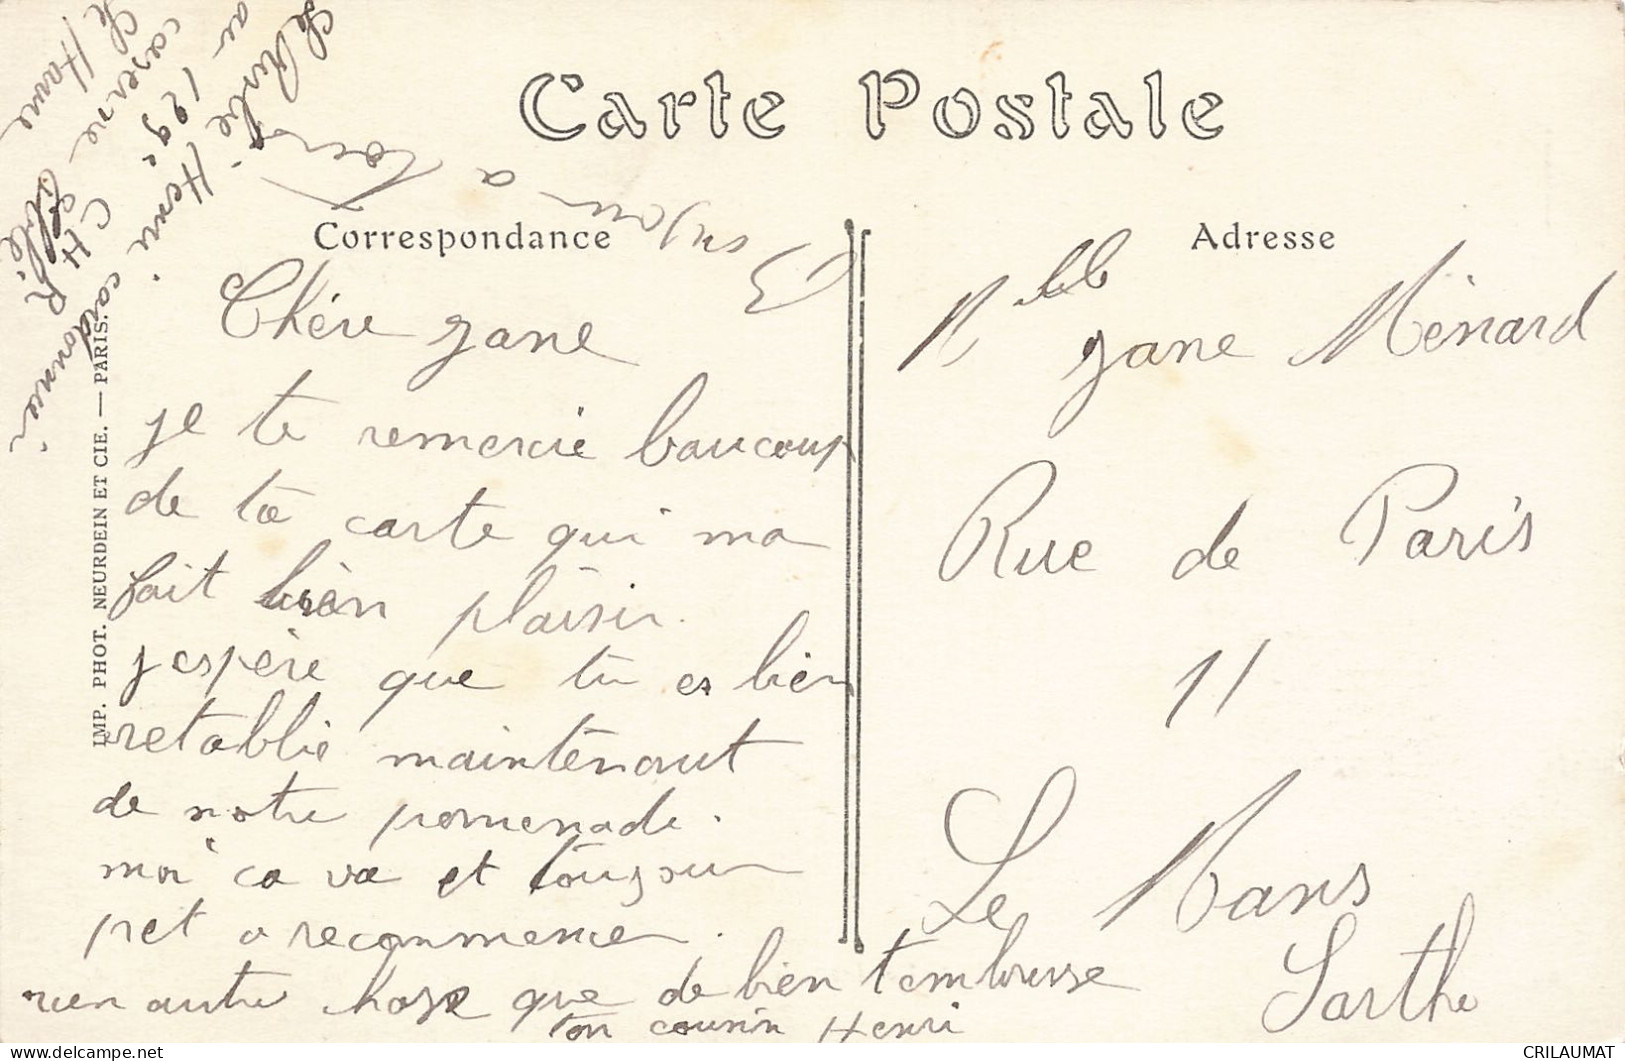 Carte Postale
Correspondance
Adresse
Chére jane
je te remercie baucoup
de ta carte qui ma
fait bien plaisir.
j espère que tu es bien
retablie maintenant
de notre promenade.
moi ca va et toujour
pret a recommencer.
rien autre chose que de bien t embrasse
ton cousin Henri
Mlle jane Ménard
Rue de Paris
11
Le Mans
Sarthe
Henri cordonnier
au 129e
CHR
caserne
Le Havre
a toi
IMP. PHOT. NEURDEIN ET CIE. — PARIS.
CRILAUMAT